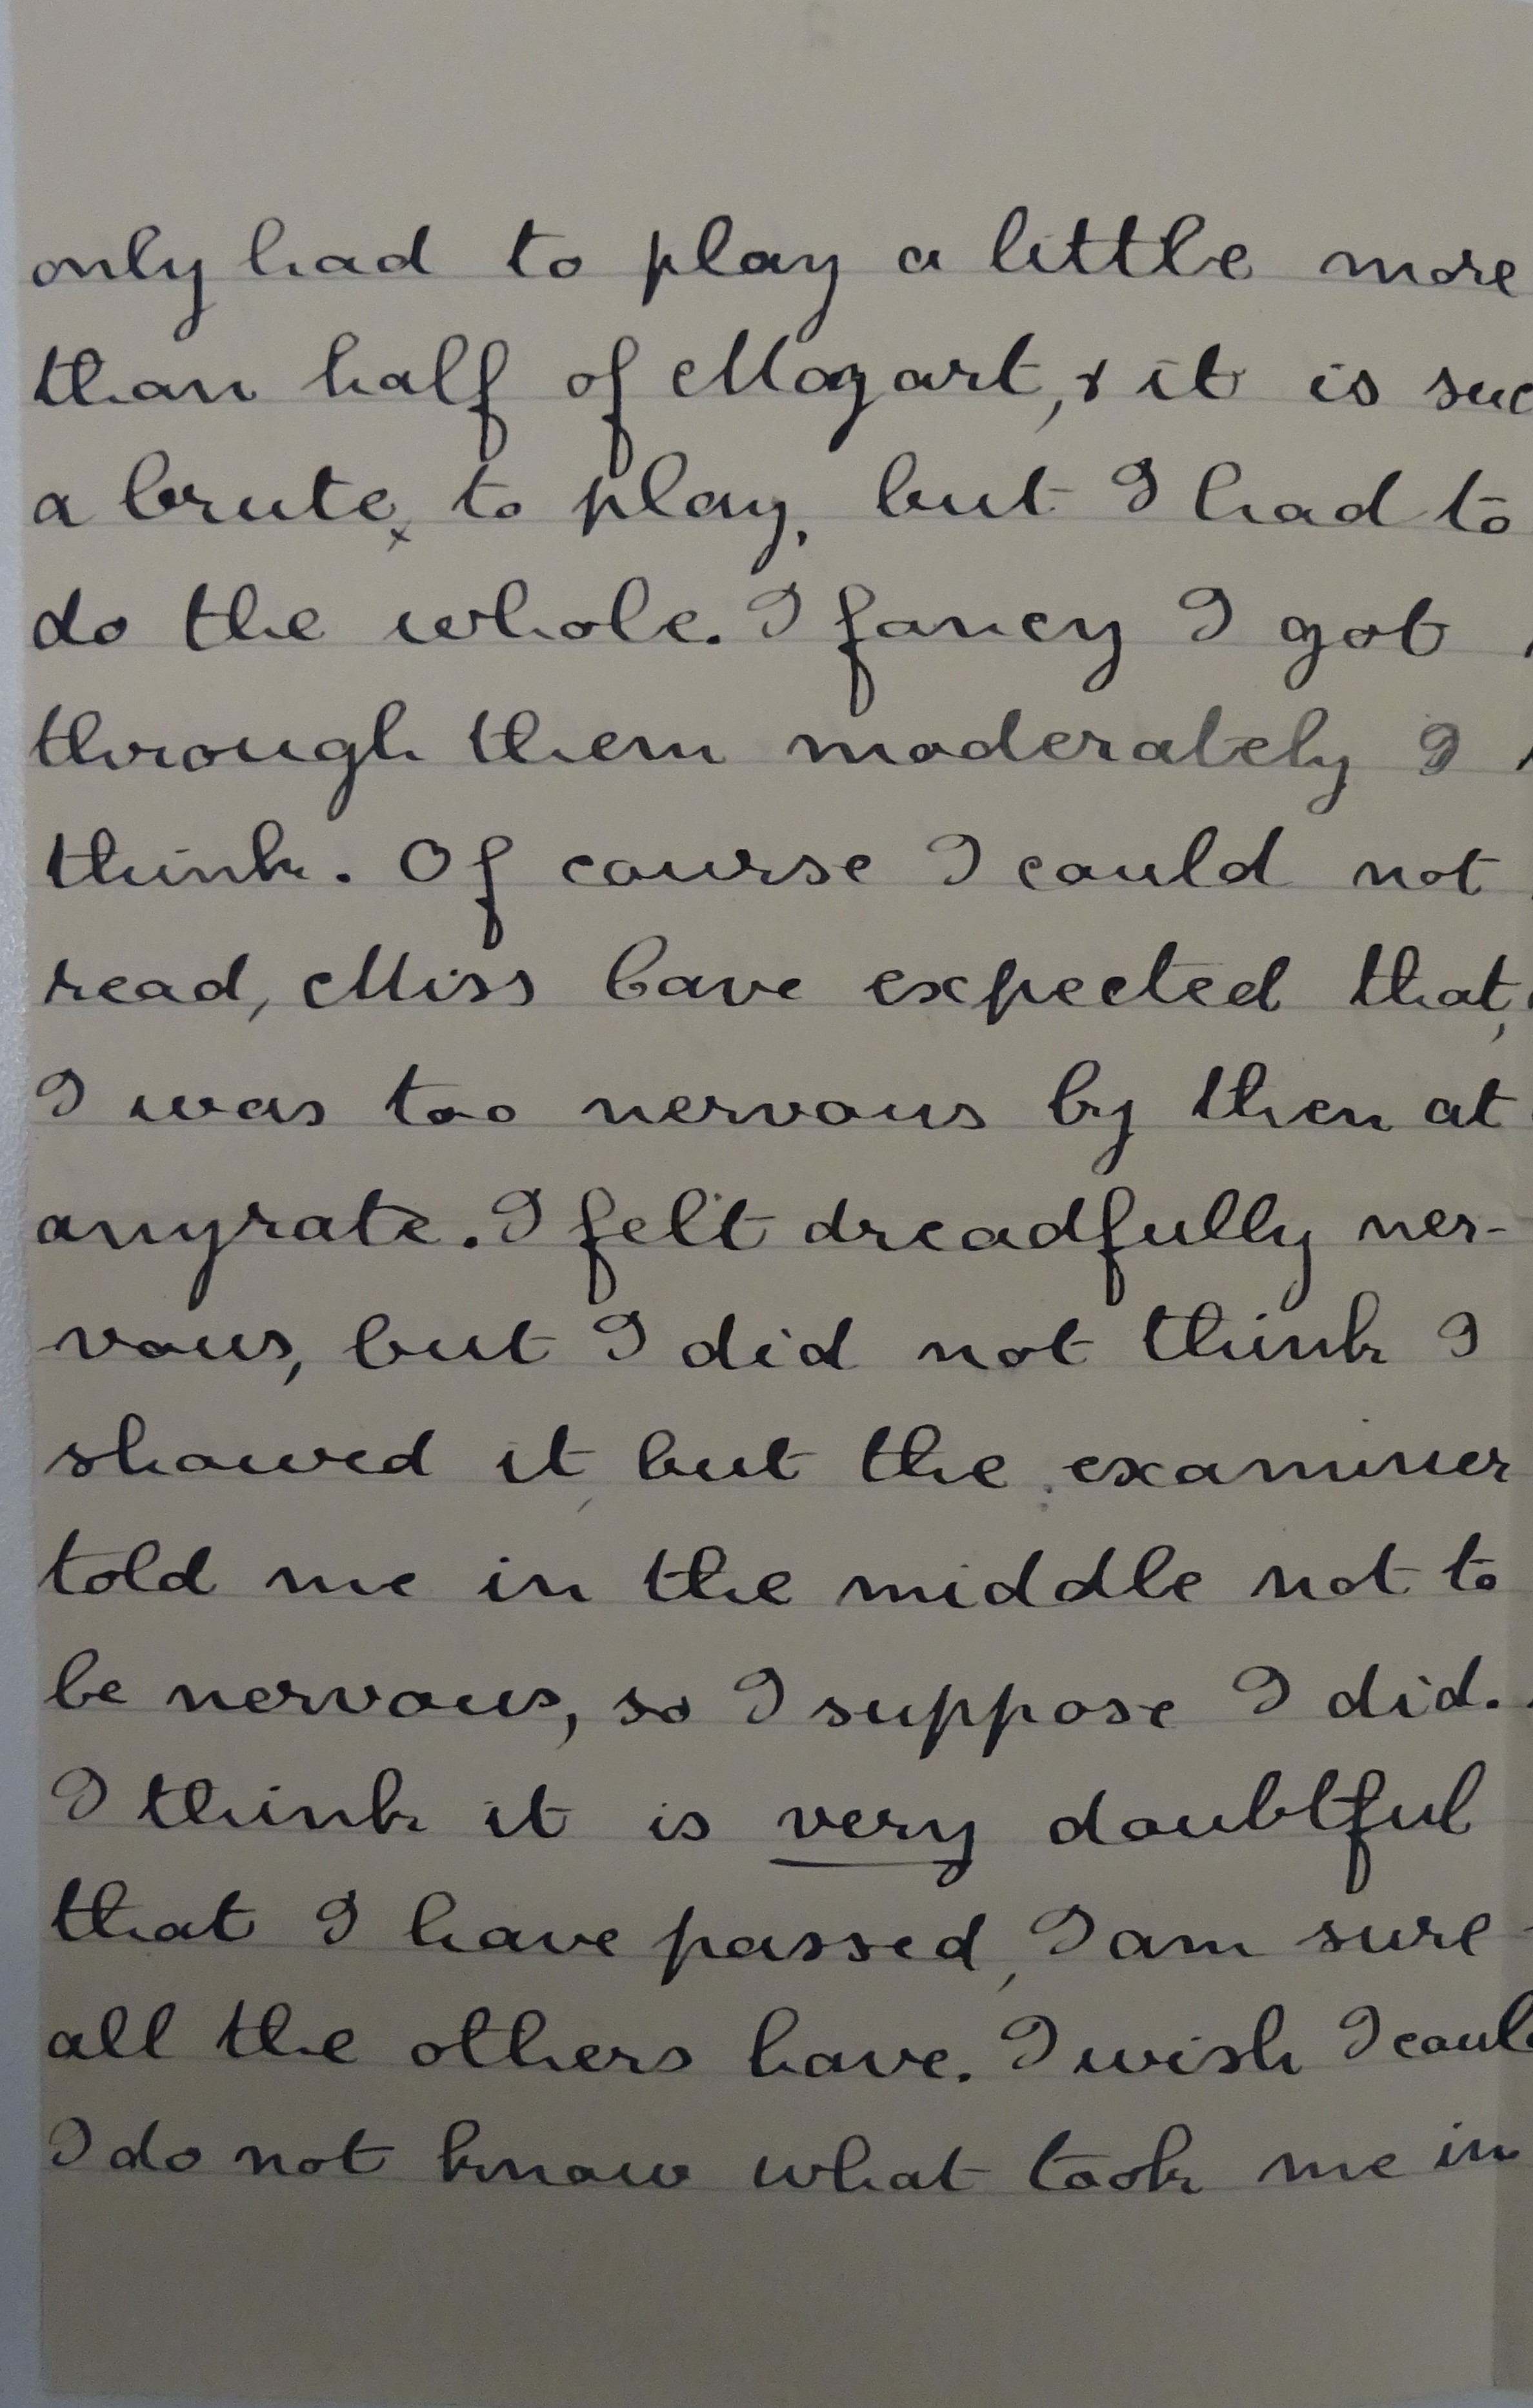 only had to play a little more
than half of Mozart, & it is suc
a brute, to play, but I had to
do the whole. I fancy I got
through them moderately I
think. Of course I could not
read, Miss Cave expected that,
I was too nervous by then at
anyrate. I felt dreadfully ner-
vous, but I did not think I
showed it, but the examiner
told me in the middle not to
be nervous, so I suppose I did.
I think it is very doubtful
that I have passed, I am sure
all the others have. I wish I coul
I do not know what took me in